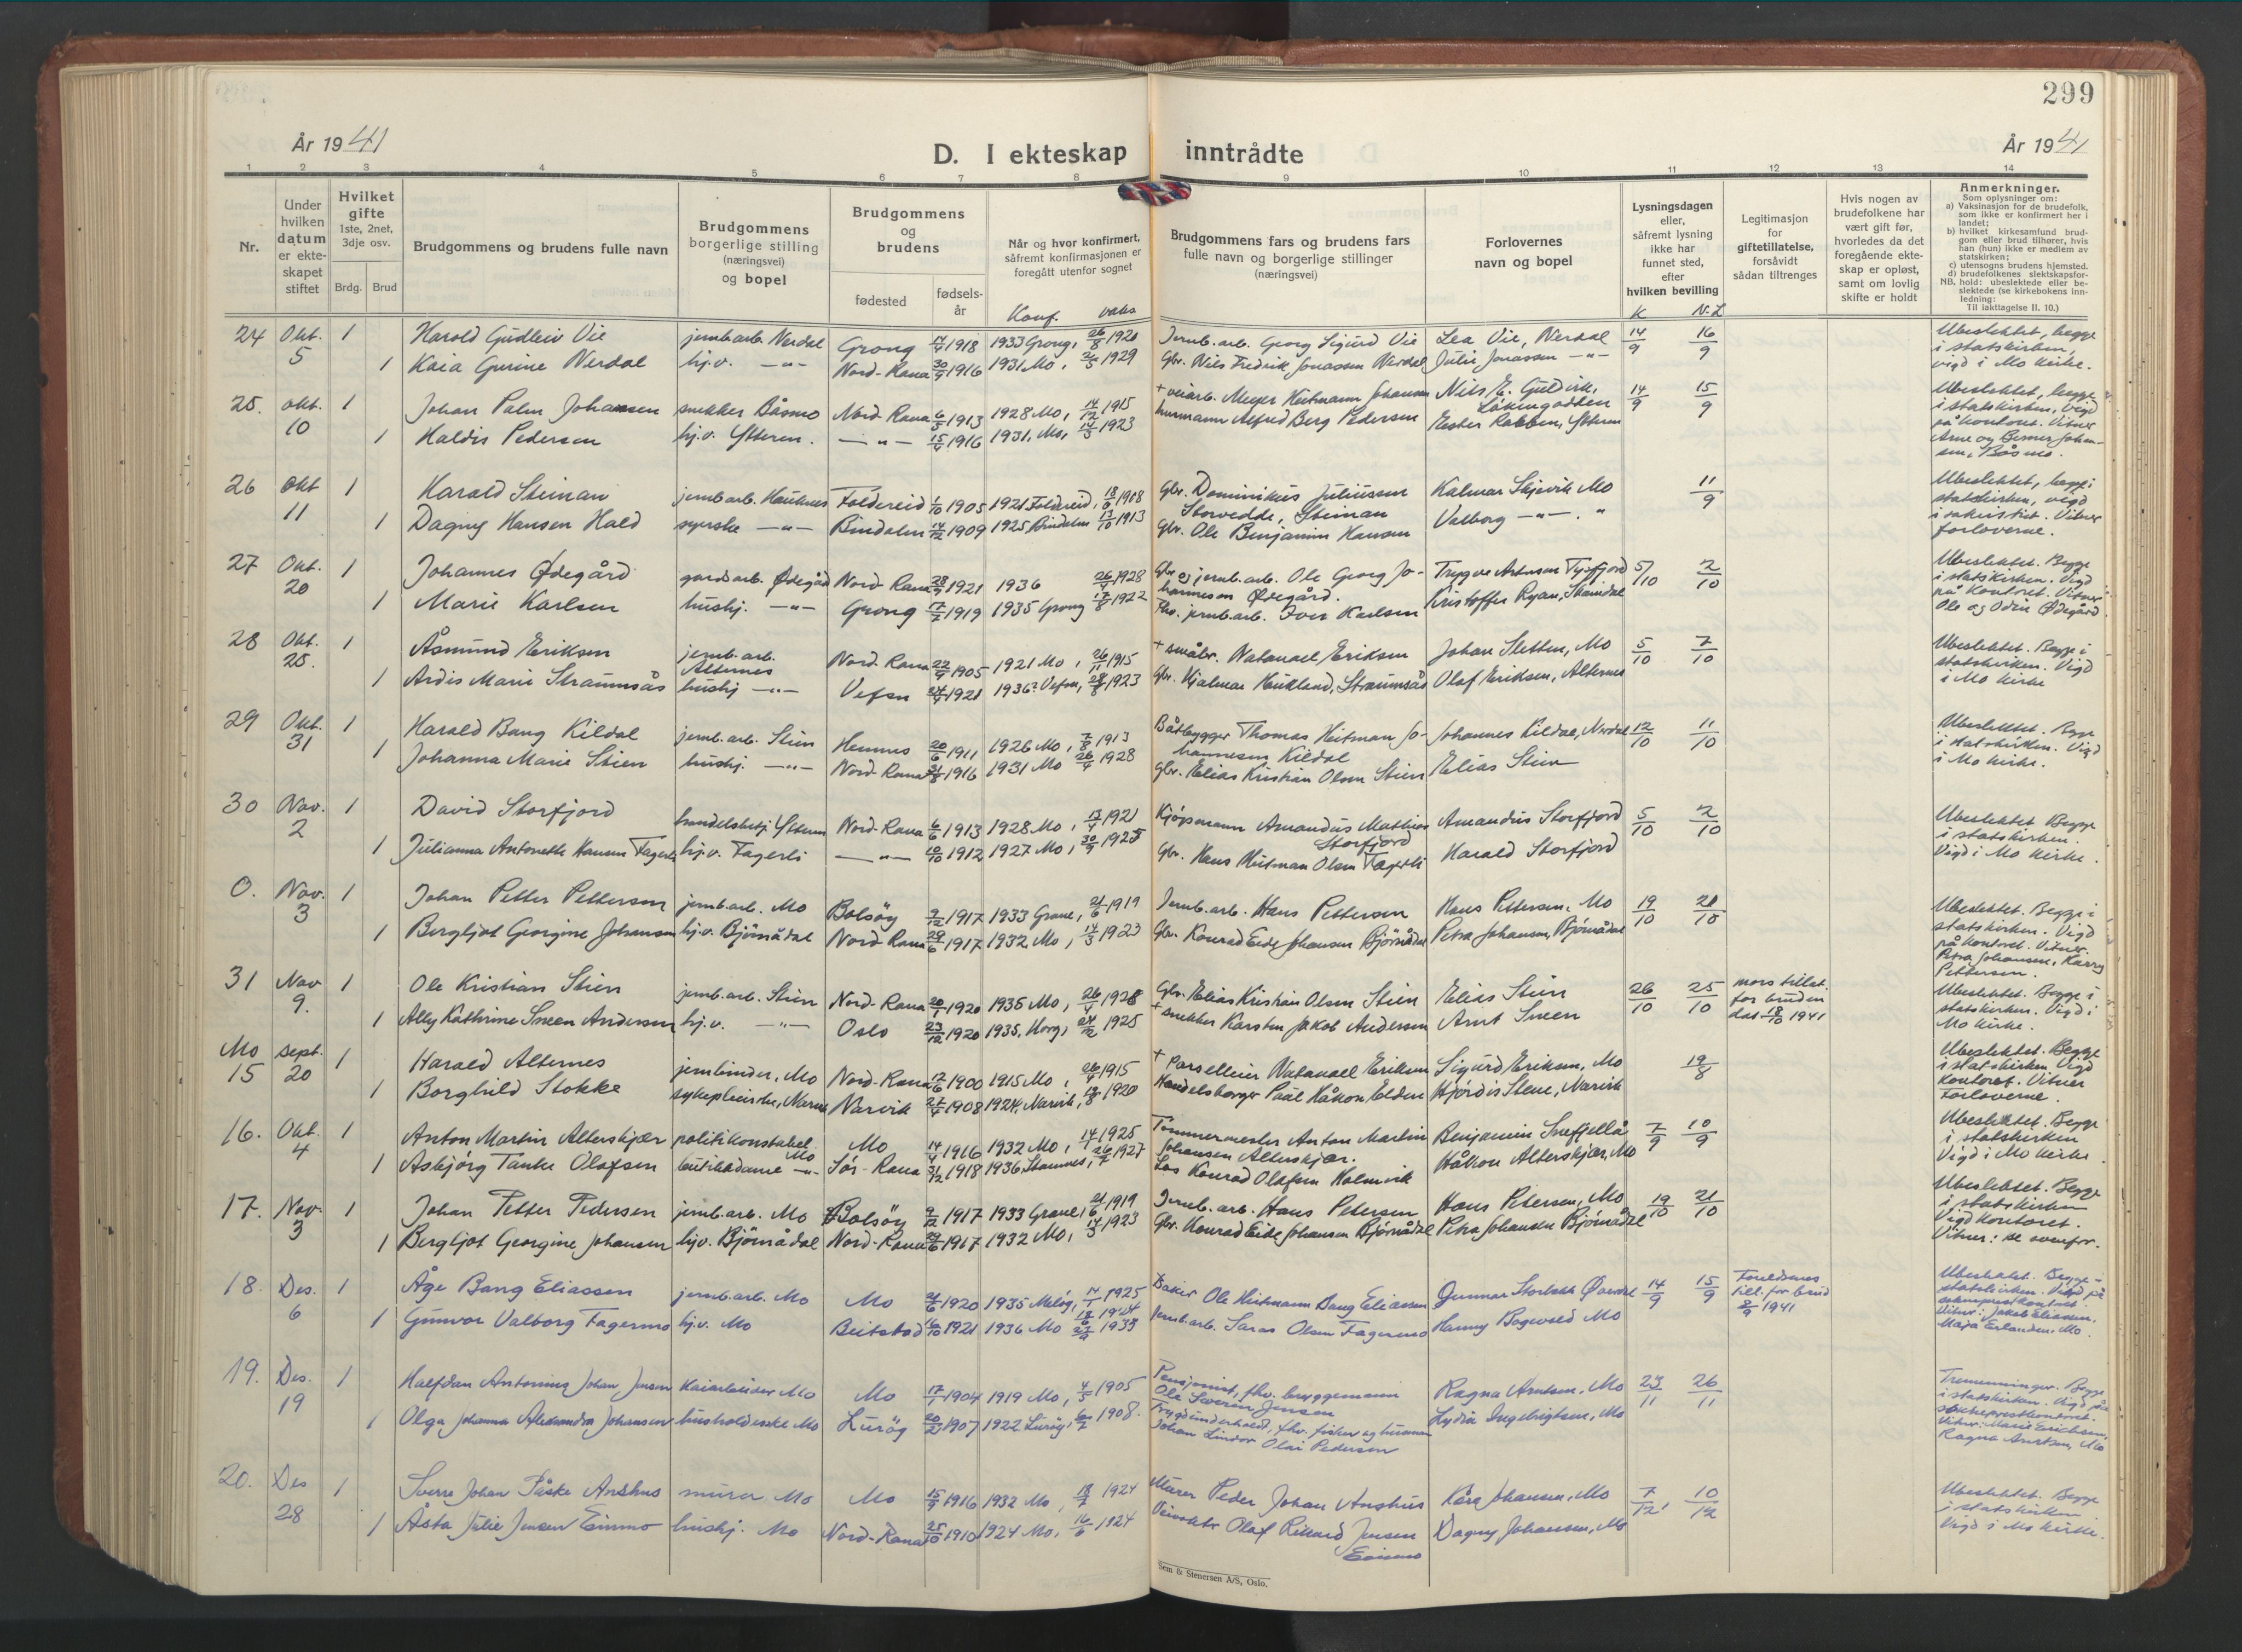 299
År 1941
D. I ekteskap inntrådte
År 1941
1 2 3 4 5 6 7 8 9 10 11 12 13 14
Nr.
Under hvilken datum er ekteskapet stiftet
Hvilket gifte 1ste, 2net, 3dje osv.
Brdg. Brud
Brudgommens og brudens fulle navn
Brudgommens borgerlige stilling (næringsvei) og bopel
Brudgommens og brudens
fødested fødselsår
Når og hvor konfirmert, såfremt konfirmasjonen er foregått utenfor sognet
Konf. vaks
Brudgommens fars og brudens fars fulle navn og borgerlige stillinger (næringsvei)
Forlovernes navn og bopel
Lysningsdagen eller, såfremt lysning ikke har funnet sted, efter hvilken bevilling
K N.L
Legitimasjon for giftetillatelse, forsåvidt sådan tiltrenges
Hvis nogen av brudefolkene har vært gift før, hvorledes da det foregående ekteskap er opløst, samt om lovlig skifte er holdt
Anmerkninger.
Som oplysninger om:
a) Vaksinasjon for de brudefolk, som ikke er konfirmert her i landet;
b) hvilket kirkesamfund brudgom eller brud tilhører, hvis han (hun) ikke er medlem av statskirken;
c) utensogns brudens hjemsted.
d) brudefolkenes slektskapsforhold: ubeslektede eller beslektede (se kirkebokens innledning:
NB.
Til iakttagelse II. 10.)
24 Okt. 5 1 Harald Gudleiv Vie jernb.arb. Nerdal Grong 1918 1933 Grong, 26/8 1920 Jernb.arb. Georg Sigurd Vie Lea Vie, Nerdal 14/9 16/9
1 Kaia Gurine Nerdal hj.v. —"— Nord-Rana 1916 1931 Mo, 1929 Gbr. Nils Fredrik Jonassen Nerdal Julie Jonassen —"—
Ubeslektet, begge i statskirken, vigd i Mo kirke.
25. okt. 10 1 Johan Palm Johansen snekker Båsmo Nord-Rana 6/5 1913 1928 Mo, 14/12 1915 + veiarb. Meyer Heitmann Johansen Nils E. Guldvik, 14/9 15/9
1 Haldis Pedersen hj.v. Ytteren. —"— 1916 1931, Mo, 14/3 1923 Alfred Berg Pedersen Ester Rabben, Ytteren
Ubeslektet, begge i statskirken, vigd på kontoret. Vitner Arne og Johansen, Båsmo.
26 Okt 11 1 Harald Steinan jernb.arb. Hauknes Foldereid 1905 1921 Foldereid, 18/6 1908 Gbr. Dominikus Juliussen Storvedde, Steinan Kalmar Skjevik Mo 11/9
1 Dagny Hansen Hald syerske —"— Bindalen 14/12 1909 1925 Bindalen 13/10 1913 Gbr. Ole Benjamin Hansen Valborg —"—. "
Ubeslektet, begge i statskirken, vigd i sakristiet. Vitner forloverne.
27 Okt. 20 1 Johannes Ødegård gardsarb. Ødegård Nord-Rana 1921 1936 1928 Gbr. og jernb.arb. Ole Georg Johannesen Ødegård. Trygve Arntsen Tysfjord 5/10 2/10
1 Marie Karlsen hushj. —"— Grong 1919 1935 Grong 17/8 1922 jernb.arb. Iver Karlsen Kristoffer Ryan,
Ubeslektet. Begge i statskirken. Vigd på kontoret. Vitner Ole og Odin Ødegård.
28 Okt. 25. 1 Åsmund Eriksen jernb.arb. Alternes Nord-Rana 1905 1921 Mo, 26/11 1915 + småbr. Natanael Eriksen Johan Sletten, Mo 5/10 7/10
1 Ardis Marie Straumsås hushj —"— Vefsn 1921 1936 Vefsn, 1923 Gbr. Hjalmar Haukland, Straumsås Olaf Eriksen, Alternes
Ubeslektet. Begge i statskirken. Vigd i Mo kirke
29 Okt. 31 1 Harald Bang Kildal jernb.arb. Stien Hemnes 20/6 1911 1926 Mo, 7/8 1913 Båtbygger Thomas Heitman Johannesen Kildal Johannes Kildal, Nerdal 12/10 11/10
1 Johanna Marie Stien hushj. —"— Nord-Rana 1916 1931 Mo 1928 Gbr. Elias Kristian Olsen Stien Elias Stien
Ubeslektet. Begge i statskirken. Vigd i Mo kirke.
30 Nov. 2 1 David Storfjord handelsbetj. Ytteren Nord-Rana 6/6 1913 1928 Mo, 1921 Kjøpmann Amandus Mathias Storfjord Amandus Storfjord 5/10 2/10
1 Julianna Antonette Hansen Fagerli hj.v. Fagerli —"— 1912 1927 Mo, 30/9 1925 Gbr. Hans Heitman Olsen Fagerli Harald Storfjord
Ubeslektet Begge i statskirken. Vigd i Mo kirke.
0. Nov. 3 1 Johan Petter Pettersen jernb.arb. Mo Bolsöy 9/12 1917 1933 Grane, 21/6 1919 Jernb.arb. Hans Pettersen Hans Pettersen, Mo 19/10 21/10
1 Bergljot Georgine Johansen hj.v. Bjørnådal Nord-Rana 29/6 1917 1932 Mo, 14/3 1923 Gbr. Konrad Eide Johansen Bjørnådal Petra Johansen, Bjørnådal
Ubeslektet. Begge i statskirken. Vigd på kontoret. Vitner. Petra Johansen, Karry Pettersen.
31 Nov 9. 1 Ole Kristian Stien jernb.arb. Stien Nord-Rana 1920 1935 Mo, 1928 Gbr. Elias Kristian Olsen Stien Elias Stien 26/10 25/10 mors tillat. for bruden dat 18/10 1941
1 Ally Kathrine Sneen Andersen hj.v. —"— Oslo 23/12 1920 1935, Korg, 1925 + snekker Karsten Jakob Andersen Arnt Sneen
Ubeslektet. Begge i statskirken. Vigd i Mo kirke.
Mo 15 Sept. 20 1 Harald Alternes jernbinder, Mo Nord-Rana 1900 1915 Mo, 1915 + Parselleier Natanael Eriksen Sigurd Eriksen, Mo 19/8
1 Borghild Stokke sykepleierske, Narvik Narvik 1908 1924, Narvik, 1920 Handelsborger Paal Håkon Elden Hjørdis Stene, Narvik
Ubeslektet. Begge i statskirken. Vigd kontoret. Vitner forloverne.
16. Okt. 4 1 Anton Martin Alterskjær politikonstabel Mo Mo 14/4 1916 1932 Mo, 1925 Tömmermester Anton Martin Johansen Alterskjær. Benjamin Snefjellå 7/9 10/9
1 Asbjörg Tanke Olafsen butikkdame —"— Sör-Rana 31/12 1918 1936, Stamnes, 1927 Los Konrad Olafsen Holmvik Håkon Alterskjær, Mo
Ubeslektet. Begge i statskirken Vigd i Mo kirke.
17. Nov. 3 1 Johan Petter Pedersen jernb.arb. Mo Bolsöy 9/12 1917 1933 Grane, 21/6 1919 Jernb.arb. Hans Petersen Hans Petersen, Mo 19/10 21/10
1 Bergljot Georgine Johansen hj.v. Bjørnådal Nord-Rana 29/6 1917 1932 Mo, 14/3 1923 Gbr. Konrad Eide Johansen Bjørnådal Petra Johansen Bjørnådal
Ubeslektet. Begge i statskirken Vigd kontoret. Vitner: se ovenfor.
18. Des. 6 1 Åge Bang Eliassen jernb.arb. Mo Mo 1920 1935 Meløy, 1925 Baker Ole Heitmann Bang Eliassen Gunnar Storbakk 14/9 15/9 Foreldrenes till. for brud 8/9 1941
1 Gunvor Valborg Fagermo hj.v. Mo Beitstad 1921 1936 Mo 1935 Jernb.arb. Olsen Fagermo Hanny Bogvold Mo
Ubeslektet. Begge i statskirken. Vigd på sokneprestkontoret. Vitner: Jakob Eliassen, Maja Erlandsen, Mo.
19. Des. 19 1 Halfdan Antonius Johan Jensen Kaiarbeider Mo Mo 1904 1919 Mo, 4/5 1905 Pensjonist, fhv. bryggemann Ole Severin Jensen Ragna Arntsen, Mo 23/11 26/11
1 Olga Johanna Aleksandra Johansen husholderske Mo Luröy 1907 1922 Luröy, 1908. Trygdunderhold, fhv. fisker og Johan Lindor Olai Pedersen Lydia Ingebrigtsen, Mo
Tremenninger. Begge i statskirken. Vigd på sokneprestkontoret. Vitner: Marie Erichsen, Ragna Arntsen, Mo
20. Des 28 1 Sverre Johan Påske Anshus murer Mo Mo 15/9 1916 1932 Mo, 18/7 1924 Murer Peder Johan Anshus Kåre Johansen, Mo 7/12 10/12
1 Åsta Julie Jensen Einmo hushj. Mo Nord-Rana 25/10 1910 1924 Mo, 16/6 1924 Olaf Rikard Jensen Einmo Dagny Johansen, Mo
Ubeslektet. Begge i statskirken Vigd i Mo kirke.
Sem & Stenersen A/S, Oslo.